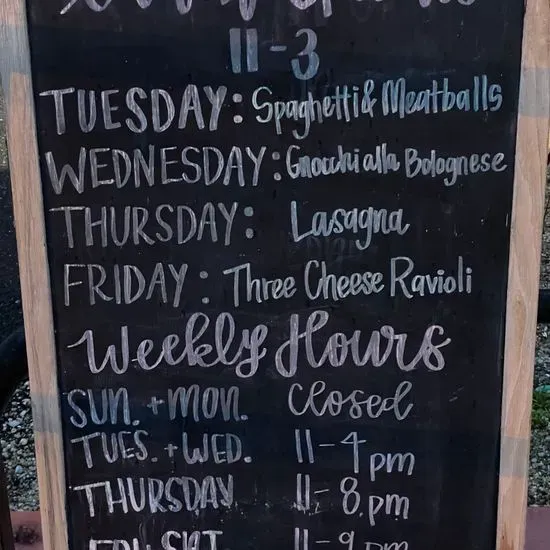 11-3
TUESDAY: Spaghetti & Meatballs
WEDNESDAY: Gnocchi alla Bolognese
THURSDAY: Lasagna
FRIDAY: Three Cheese Ravioli
Weekly Hours
SUN. + MON. Closed
TUES. + WED. 11-4pm
THURSDAY 11-8pm
FRI SAT 11-9pm